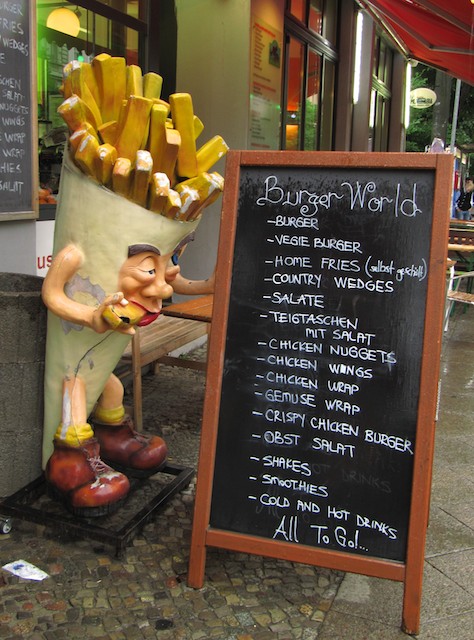 Burger World
- BURGER
- VEGIE BURGER
- HOME FRIES (selbst geschält)
- COUNTRY WEDGES
- SALATE
- TEIGTASCHEN
MIT SALAT
- CHICKEN NUGGETS
- CHICKEN WINGS
- CHICKEN WRAP
- GEMUSE WRAP
- CRISPY CHICKEN BURGER
- OBST SALAT
- SHAKES
- SMOOTHIES
- COLD AND HOT DRINKS
All To Go!...
BURGER
FRIES
WEDGES
SALAT
NUGGETS
WINGS
WRAP
WRAP
SALAT
us